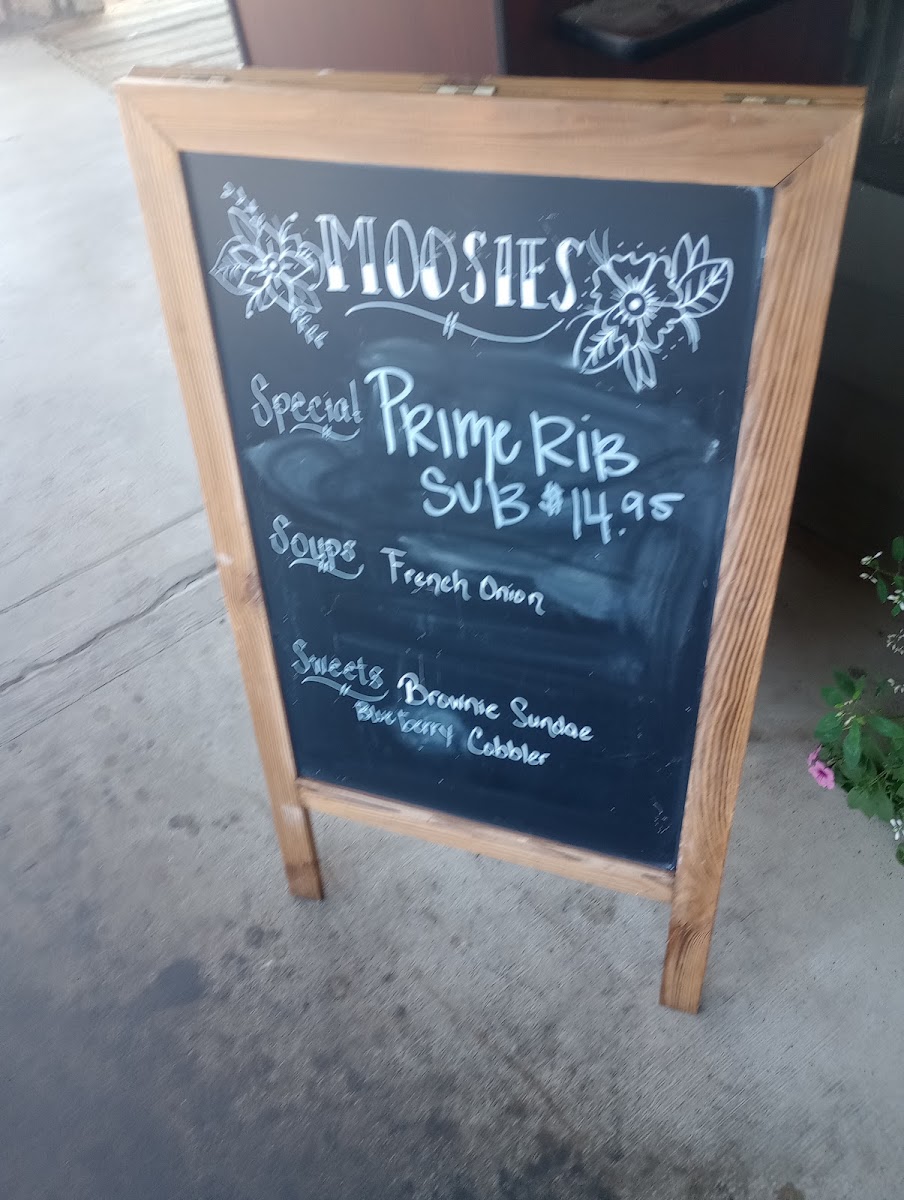 MOOSIES
Special PRIME RIB
SUB $14.95
Soups French Onion
Sweets Brownie Sundae
Blueberry Cobbler